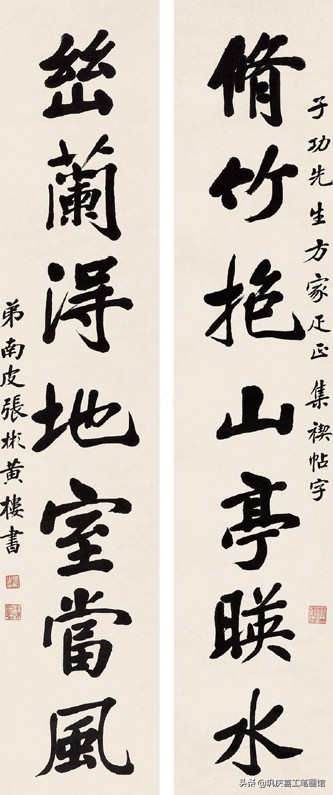 子功先生方家疋正 集禊帖字
脩竹抱山亭暎水
幽蘭得地室當風
弟南皮張彬黄樓書
头条 @巩庆喜工笔画馆